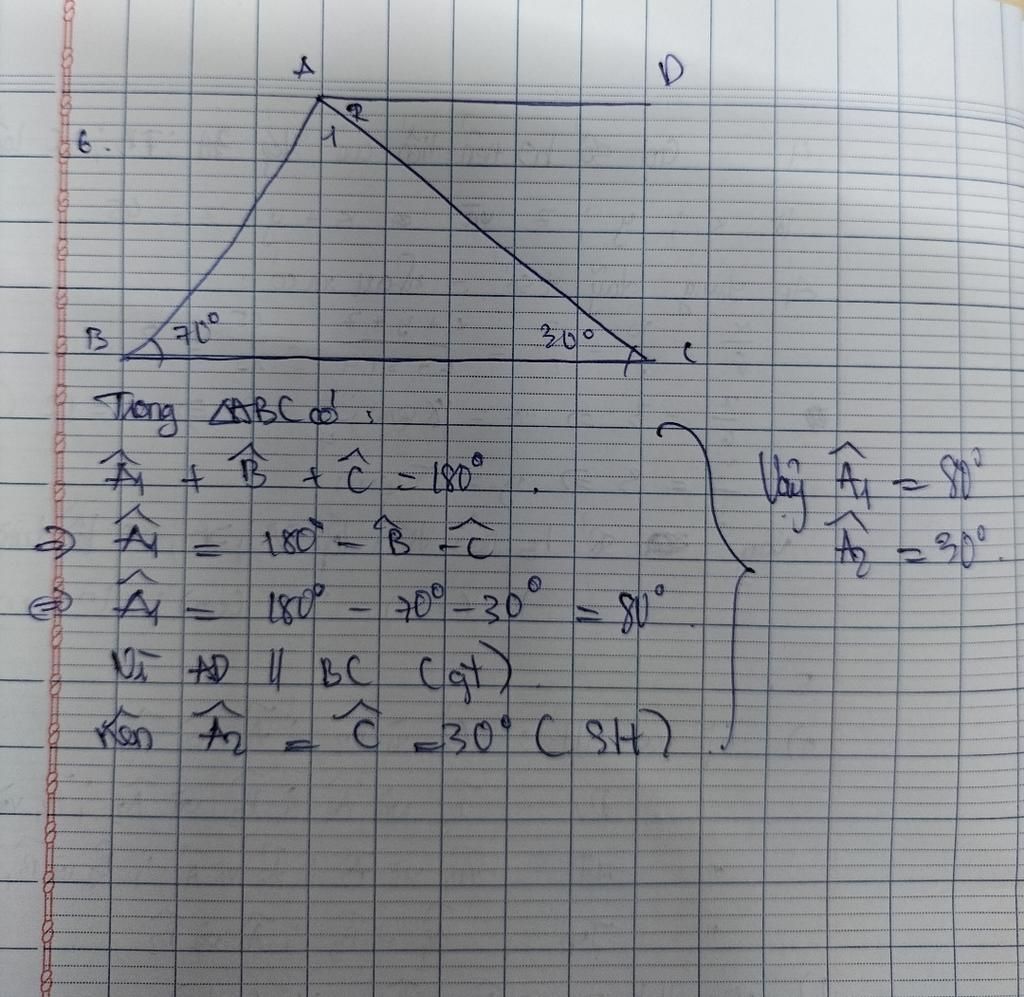 A D
6.
1 2
B 70° 30° C
Trong ΔABC có:
Â₁ + B̂ + Ĉ = 180°.
⇒ Â₁ = 180° - B̂ - Ĉ
⇔ Â₁ = 180° - 70° - 30° = 80°.
Vì AD // BC (gt)
Nên Â₂ = Ĉ = 30° (SH)
Vậy Â₁ = 80°
Â₂ = 30°.